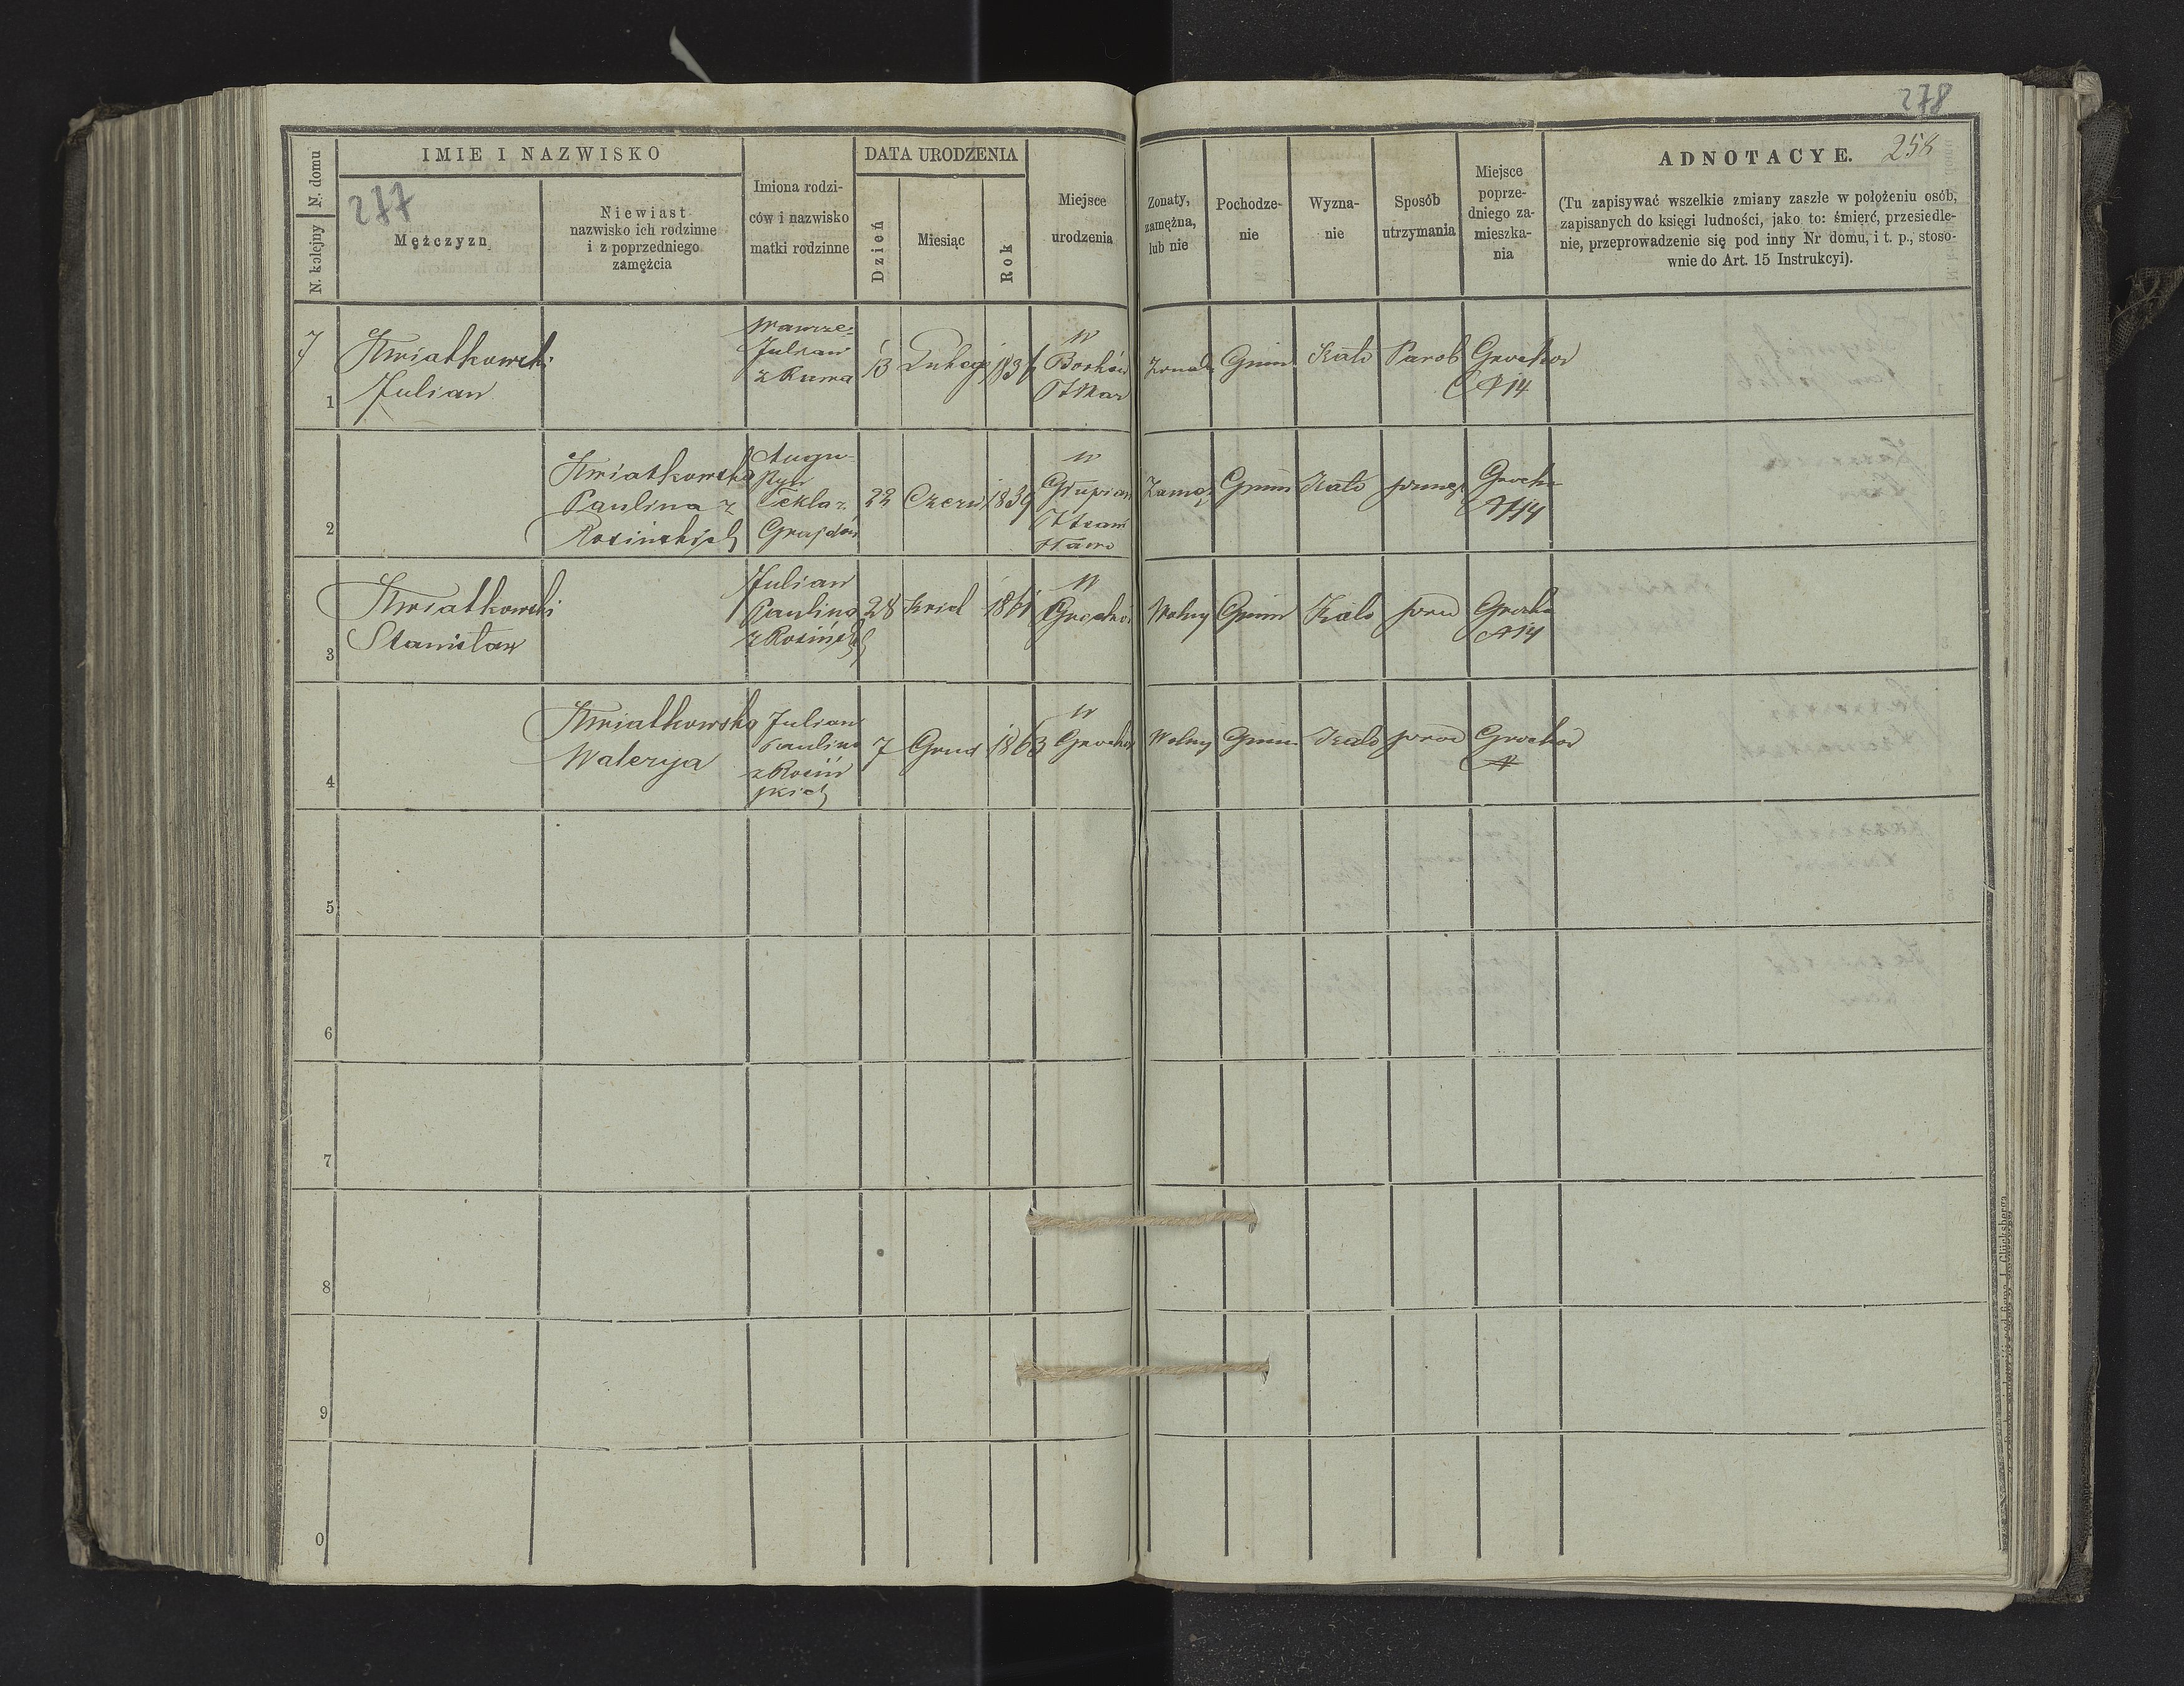 278
258
277
N. domu
N. kolejny
IMIE I NAZWISKO
Mężczyzn
Niewiast
nazwisko ich rodzinne
i z poprzedniego
zamężcia
Imiona rodzi-
ców i nazwisko
matki rodzinne
DATA URODZENIA
Dzień
Miesiąc
Rok
Miejsce
urodzenia
Żonaty,
zamężna,
lub nie
Pochodze-
nie
Wyzna-
nie
Sposób
utrzymania
Miejsce
poprze-
dniego za-
mieszka-
nia
ADNOTACYE.
(Tu zapisywać wszelkie zmiany zaszłe w położeniu osób,
zapisanych do księgi ludności, jako to: śmierć, przesiedle-
nie, przeprowadzenie się pod inny Nr domu, i t. p., stoso-
wnie do Art. 15 Instrukcyi).
7
1
Kwiatkowski
Julian
Wawrze-
Julian
z Kuma
13
W
Borków
Gmin
Kato
Parob
Grochow
N 14
2
Kwiatkowska
Paulina z
Rosińskich
Augu-
Tekla z
22
Czerw
1839
W
Zamęż
Gmin
Kato
N 14
3
Kwiatkowski
Stanisław
Julian
Paulina
z Rosińskich
28
Kwied
1861
W
Grochow
Wolny
Gmin
Kato
Grocho
N 14
4
Kwiatkowska
Waleryja
Julian
Paulina
z Rosiń
skich
7
Grud
1863
W
Grochow
Wolny
Gmin
Kato
Grochow
N
5
6
7
8
9
0